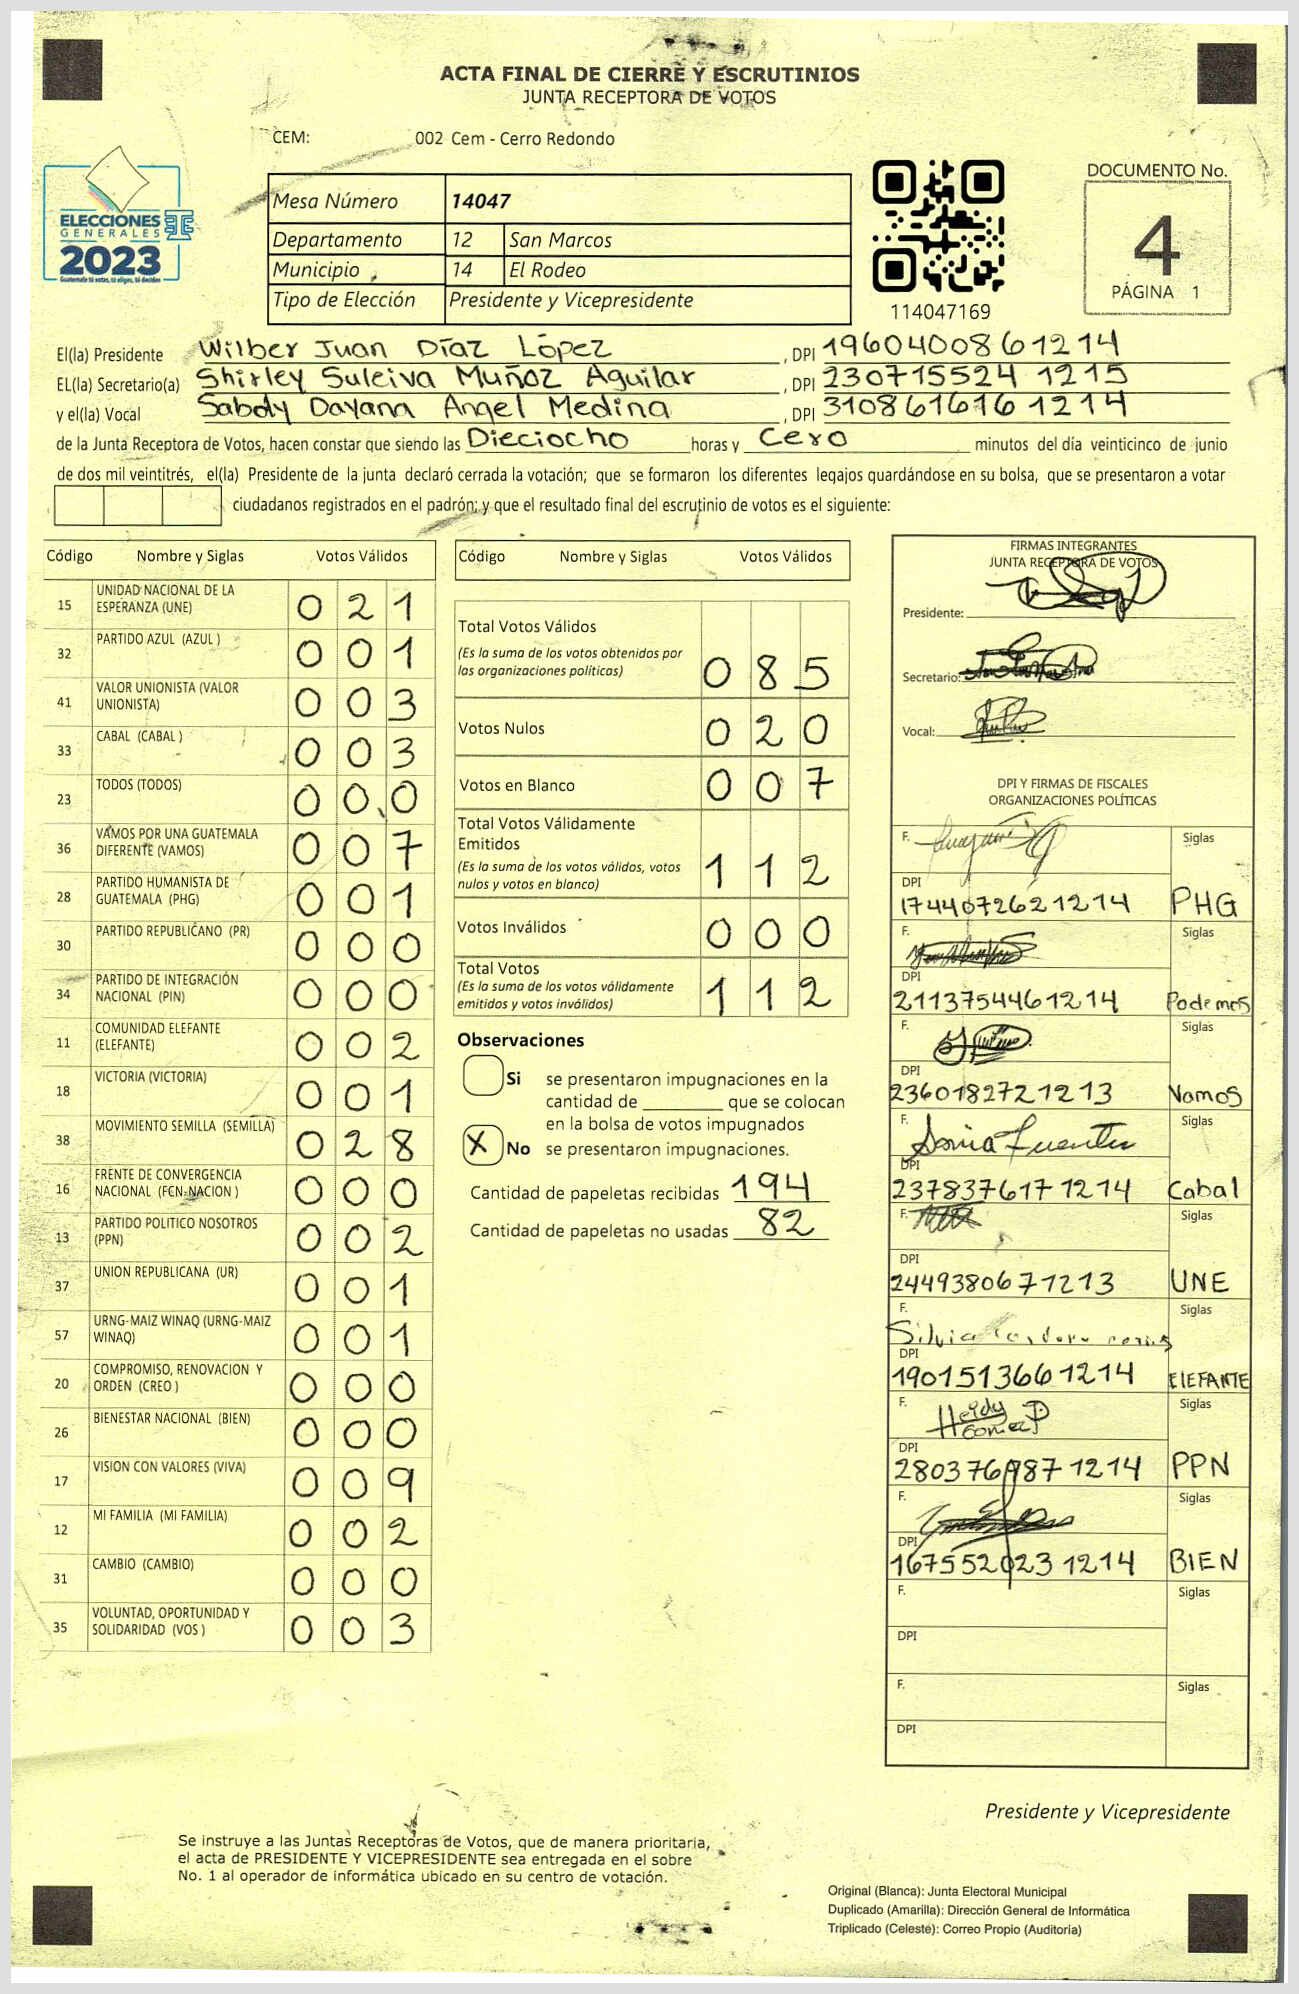 ACTA FINAL DE CIERRE Y ESCRUTINIOS
JUNTA RECEPTORA DE VOTOS
CEM: 002 Cem - Cerro Redondo
ELECCIONES
GENERALES
2023
Guatemala tú votas, tú eliges, tú decides
Mesa Número 14047
Departamento 12 San Marcos
Municipio 14 El Rodeo
Tipo de Elección Presidente y Vicepresidente
114047169
DOCUMENTO No.
4
PÁGINA 1
El(la) Presidente Wilber Juan Díaz López, DPI 1960400861214
EL(la) Secretario(a) Shirley Suleiva Muñoz Aguilar, DPI 230715524 1215
y el(la) Vocal Sabdy Dayana Angel Medina, DPI 310861616 1214
de la Junta Receptora de Votos, hacen constar que siendo las Dieciocho horas y Cero minutos del día veinticinco de junio
de dos mil veintitrés, el(la) Presidente de la junta declaró cerrada la votación; que se formaron los diferentes legajos guardándose en su bolsa, que se presentaron a votar
ciudadanos registrados en el padrón; y que el resultado final del escrutinio de votos es el siguiente:
Código Nombre y Siglas Votos Válidos
15 UNIDAD NACIONAL DE LA
ESPERANZA (UNE) 0 2 1
32 PARTIDO AZUL (AZUL ) 0 0 1
41 VALOR UNIONISTA (VALOR
UNIONISTA) 0 0 3
33 CABAL (CABAL ) 0 0 3
23 TODOS (TODOS) 0 0 0
36 VAMOS POR UNA GUATEMALA
DIFERENTE (VAMOS) 0 0 7
28 PARTIDO HUMANISTA DE
GUATEMALA (PHG) 0 0 1
30 PARTIDO REPUBLICANO (PR) 0 0 0
34 PARTIDO DE INTEGRACIÓN
NACIONAL (PIN) 0 0 0
11 COMUNIDAD ELEFANTE
(ELEFANTE) 0 0 2
18 VICTORIA (VICTORIA) 0 0 1
38 MOVIMIENTO SEMILLA (SEMILLA) 0 2 8
16 FRENTE DE CONVERGENCIA
NACIONAL (FCN-NACION ) 0 0 0
13 PARTIDO POLITICO NOSOTROS
(PPN) 0 0 2
37 UNION REPUBLICANA (UR) 0 0 1
57 URNG-MAIZ WINAQ (URNG-MAIZ
WINAQ) 0 0 1
20 COMPROMISO, RENOVACION Y
ORDEN (CREO ) 0 0 0
26 BIENESTAR NACIONAL (BIEN) 0 0 0
17 VISION CON VALORES (VIVA) 0 0 9
12 MI FAMILIA (MI FAMILIA) 0 0 2
31 CAMBIO (CAMBIO) 0 0 0
35 VOLUNTAD, OPORTUNIDAD Y
SOLIDARIDAD (VOS ) 0 0 3
Código Nombre y Siglas Votos Válidos
Total Votos Válidos
(Es la suma de los votos obtenidos por
las organizaciones políticas) 0 8 5
Votos Nulos 0 2 0
Votos en Blanco 0 0 7
Total Votos Válidamente
Emitidos
(Es la suma de los votos válidos, votos
nulos y votos en blanco) 1 1 2
Votos Inválidos 0 0 0
Total Votos
(Es la suma de los votos válidamente
emitidos y votos inválidos) 1 1 2
Observaciones
Si se presentaron impugnaciones en la
cantidad de ________ que se colocan
en la bolsa de votos impugnados
X No se presentaron impugnaciones.
Cantidad de papeletas recibidas 194
Cantidad de papeletas no usadas 82
FIRMAS INTEGRANTES
JUNTA RECEPTORA DE VOTOS
Presidente:
Secretario:
Vocal:
DPI Y FIRMAS DE FISCALES
ORGANIZACIONES POLÍTICAS
F. Siglas
DPI
1744072621214 PHG
F. Siglas
DPI
2113754461214 Podemos
F. Siglas
DPI
2360182721213 Vamos
F. Sonia Fuentes Siglas
DPI
2378376171214 Cabal
F. Siglas
DPI
2449380671213 UNE
F. Silvia Siglas
DPI
1901513661214 ElEFANTE
F. Heidy Gomez P Siglas
DPI
280376987 1214 PPN
F. Siglas
DPI
167552023 1214 BIEN
F. Siglas
DPI
F. Siglas
DPI
Presidente y Vicepresidente
Se instruye a las Juntas Receptoras de Votos, que de manera prioritaria,
el acta de PRESIDENTE Y VICEPRESIDENTE sea entregada en el sobre
No. 1 al operador de informática ubicado en su centro de votación.
Original (Blanca): Junta Electoral Municipal
Duplicado (Amarilla): Dirección General de Informática
Triplicado (Celeste): Correo Propio (Auditoría)